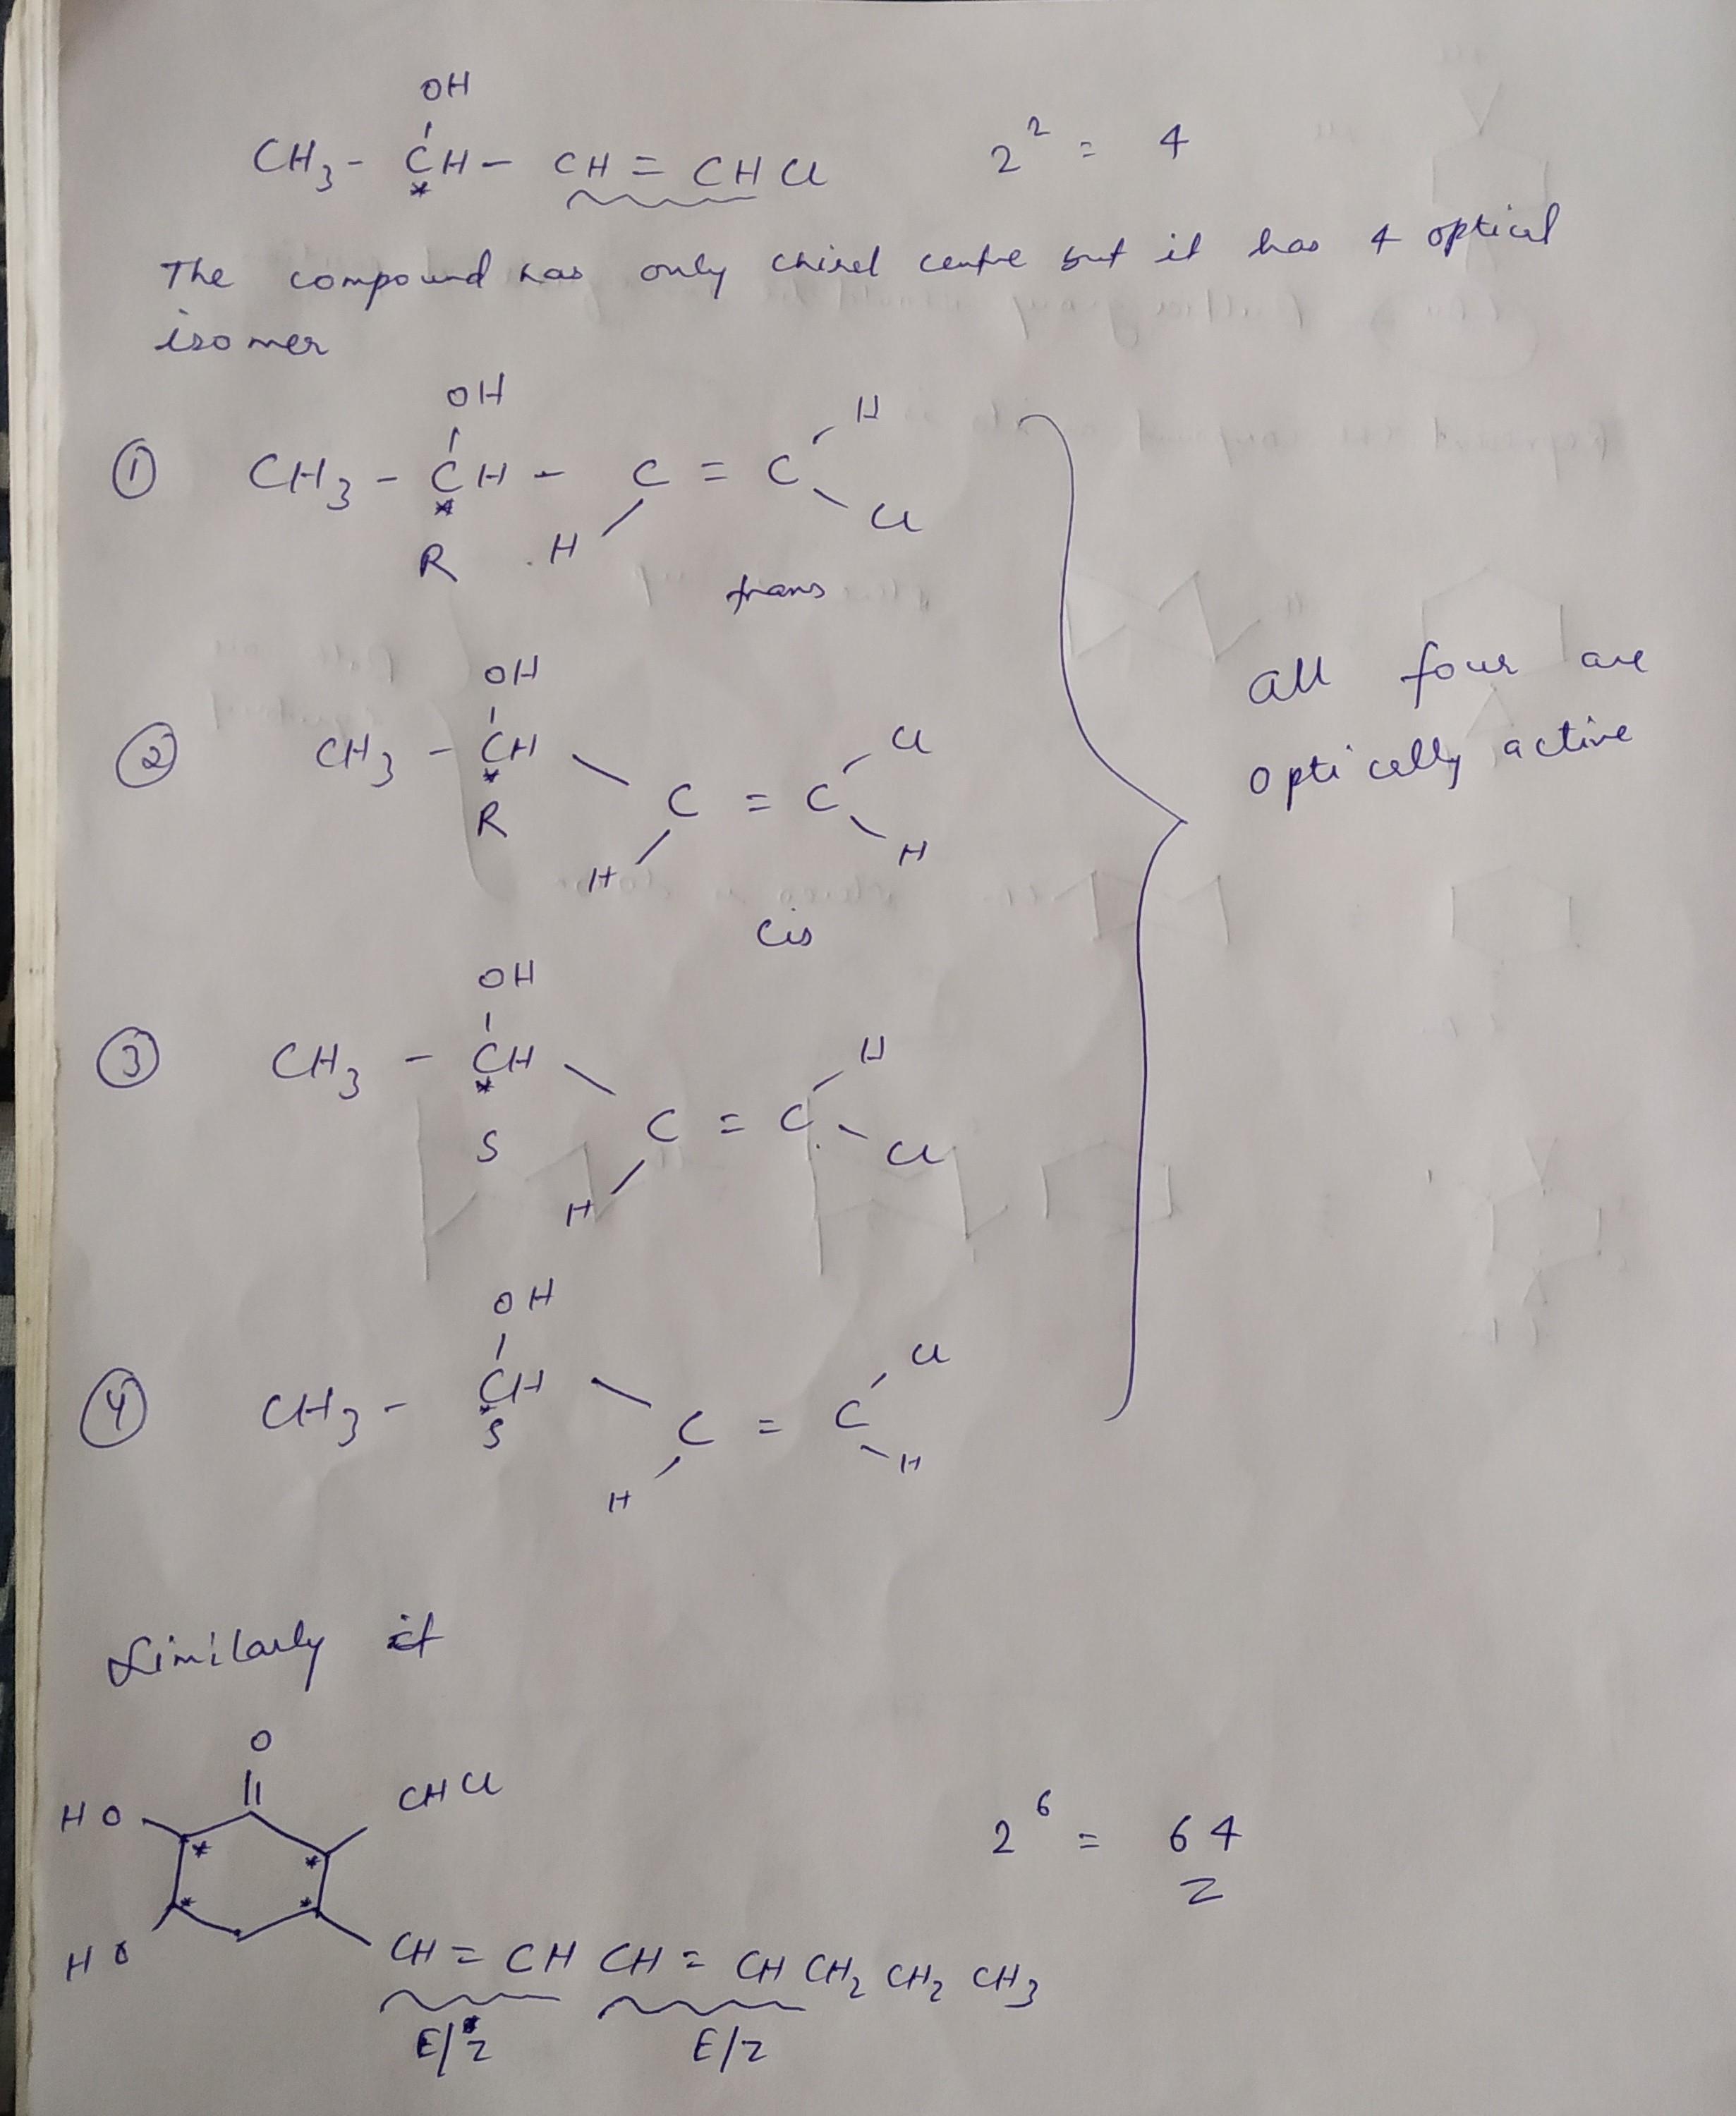 OH
CH3 - CH - CH = CHCl 2² = 4
*
The compound has only chirel centre but it has 4 optical
isomer
OH H
① CH3 - CH - C = C
* Cl
R H
trans
OH
② CH3 - CH Cl
* C = C
R H
H
cis
all four are
optically active
OH
③ CH3 - CH H
* C = C
S Cl
H
OH
④ CH3 - CH Cl
* C = C
S H
H
Similarly it
O
HO CHCl
* * 2⁶ = 64
* *
HO CH = CH CH = CH CH2 CH2 CH3
E/Z E/Z